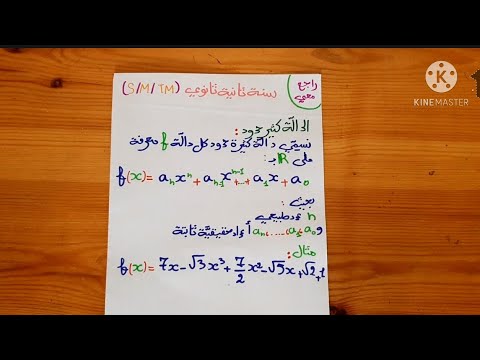 راجع معي
سنة ثانية ثانوي (S/M/TM)
KINEMASTER
الدالة كثير حدود:
نسمي دالة كثيرة حدود كل دالة f معرفة
على R بـ:
f(x) = aₙxⁿ + aₙ₋₁xⁿ⁻¹ +...+ a₁x + a₀
بحيث:
n عدد طبيعي
و a₀، a₁، ..... aₙ أعداد حقيقية ثابتة
مثال:
f(x) = 7x - √3x³ + 7/2 x² - √5x + √2 + 1